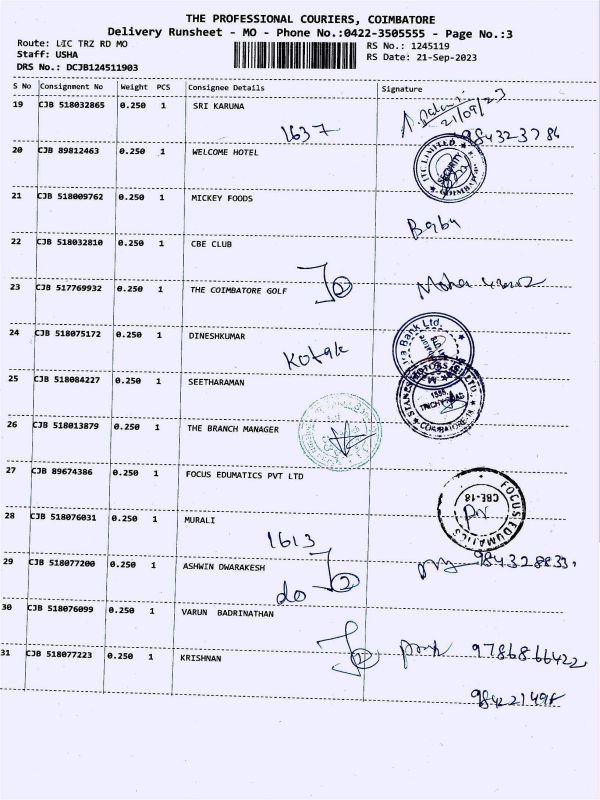 THE PROFESSIONAL COURIERS, COIMBATORE
Delivery Runsheet - MO - Phone No.:0422-3505555 - Page No.:3
Route: LIC TRZ RD MO
Staff: USHA
DRS No.: DCJB124511903
RS No.: 1245119
RS Date: 21-Sep-2023
S No Consignment No Weight PCS Consignee Details Signature
19 CJB 518032865 0.250 1 SRI KARUNA
21/09/23
1637
20 CJB 89812463 0.250 1 WELCOME HOTEL
ITC LIMITED
SECURITY
21 CJB 518009762 0.250 1 MICKEY FOODS
Babu
22 CJB 518032810 0.250 1 CBE CLUB
23 CJB 517769932 0.250 1 THE COIMBATORE GOLF
24 CJB 518075172 0.250 1 DINESHKUMAR
Kotak
Bank Ltd.
25 CJB 518084227 0.250 1 SEETHARAMAN
STANES MOTORS (S.I.) LTD.
COIMBATORE
26 CJB 518013879 0.250 1 THE BRANCH MANAGER
27 CJB 89674386 0.250 1 FOCUS EDUMATICS PVT LTD
FOCUS EDUMATICS
CBE-18
28 CJB 518076031 0.250 1 MURALI
1613
29 CJB 518077200 0.250 1 ASHWIN DWARAKESH
do
30 CJB 518076099 0.250 1 VARUN BADRINATHAN
31 CJB 518077223 0.250 1 KRISHNAN
9786866422